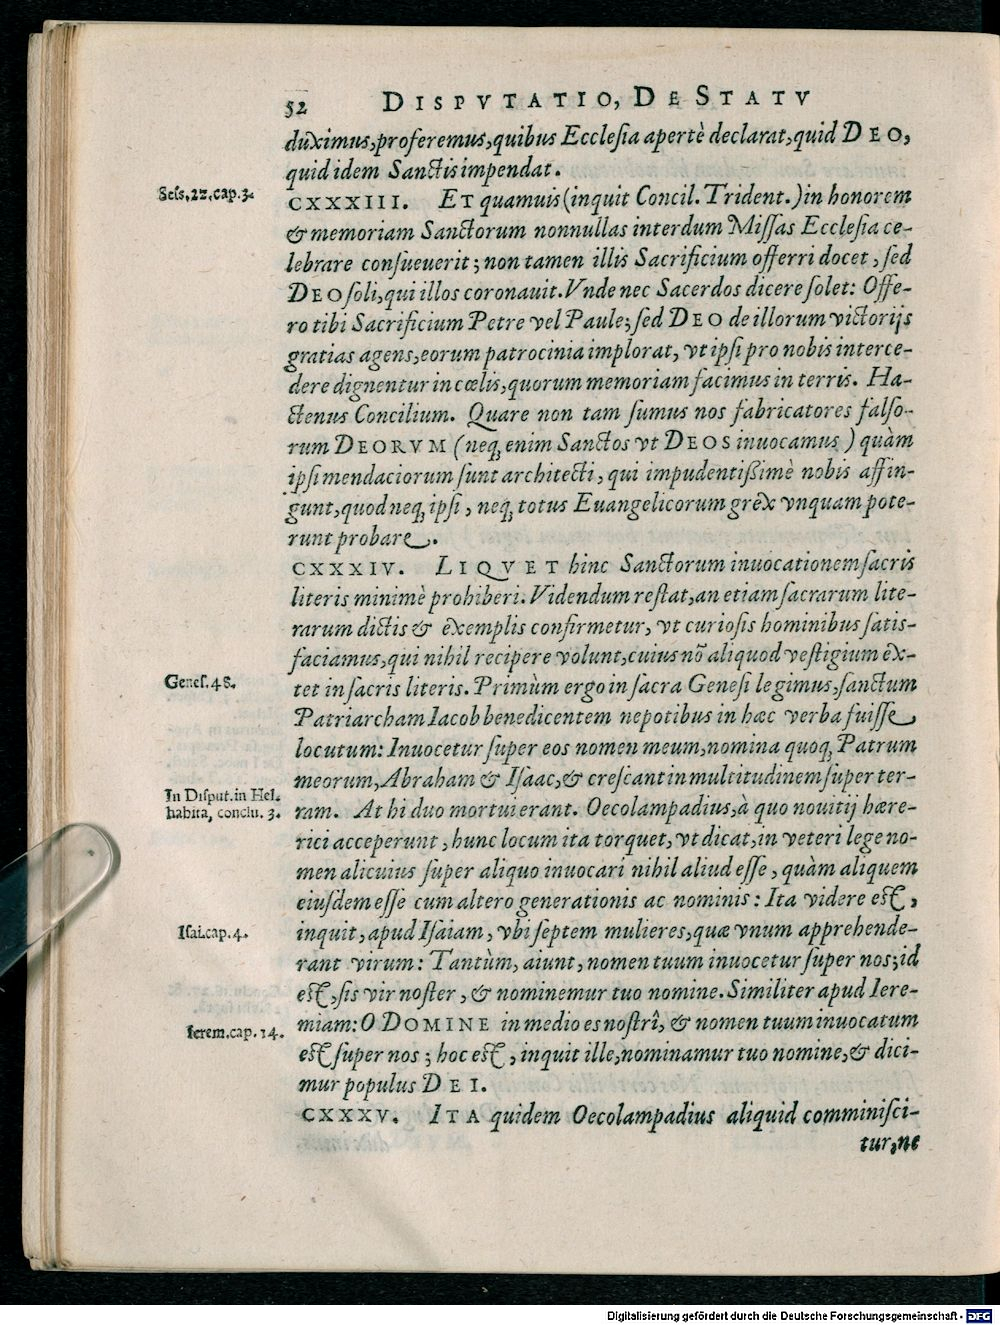 52 DISPVTATIO, DE STATV
duximus, proferemus, quibus Ecclesia apertè declarat, quid DEO,
quid idem Sanctis impendat.
Sess. 22. cap. 3.
CXXXIII. ET quamuis (inquit Concil. Trident.) in honorem
& memoriam Sanctorum nonnullas interdum Missas Ecclesia ce-
lebrare consueuerit; non tamen illis Sacrificium offerri docet, sed
DEO soli, qui illos coronauit. Vnde nec Sacerdos dicere solet: Offe-
ro tibi Sacrificium Petre vel Paule; sed DEO de illorum victorijs
gratias agens, eorum patrocinia implorat, vt ipsi pro nobis interce-
dere dignentur in cœlis, quorum memoriam facimus in terris. Ha-
ctenus Concilium. Quare non tam sumus nos fabricatores falso-
rum DEORVM (neq; enim Sanctos vt DEOS inuocamus) quàm
ipsi mendaciorum sunt architecti, qui impudentißimè nobis affin-
gunt, quod neq; ipsi, neq; totus Euangelicorum grex vnquam pote-
runt probare.
CXXXIV. LIQVET hinc Sanctorum inuocationem sacris
literis minimè prohiberi. Videndum restat, an etiam sacrarum lite-
rarum dictis & exemplis confirmetur, vt curiosis hominibus satis-
faciamus, qui nihil recipere volunt, cuius nō aliquod vestigium ex-
Genes. 48.
tet in sacris literis. Primùm ergo in sacra Genesi legimus, sanctum
Patriarcham Iacob benedicentem nepotibus in hæc verba fuisse
locutum: Inuocetur super eos nomen meum, nomina quoq; Patrum
meorum, Abraham & Isaac, & crescant in multitudinem super ter-
In Disput. in Hel.
habita, conclu. 3.
ram. At hi duo mortui erant. Oecolampadius, à quo nouitij hære-
rici acceperunt, hunc locum ita torquet, vt dicat, in veteri lege no-
men alicuius super aliquo inuocari nihil aliud esse, quàm aliquem
eiusdem esse cum altero generationis ac nominis: Ita videre est,
Isai. cap. 4.
inquit, apud Isaiam, vbi septem mulieres, quæ vnum apprehende-
rant virum: Tantùm, aiunt, nomen tuum inuocetur super nos; id
est, sis vir noster, & nominemur tuo nomine. Similiter apud Iere-
Ierem. cap. 14.
miam: O DOMINE in medio es nostrî, & nomen tuum inuocatum
est super nos; hoc est, inquit ille, nominamur tuo nomine, & dici-
mur populus DEI.
CXXXV. ITA quidem Oecolampadius aliquid comminisci-
tur, ne
Digitalisierung gefördert durch die Deutsche Forschungsgemeinschaft - DFG